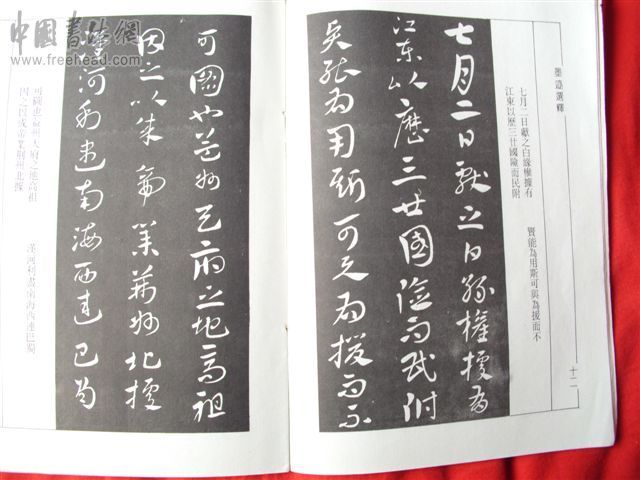 墨迹選釋
七月二日獻之白孫權據有
江東以歷三世國險而民附
賢能為用斯可與為援而不
十二
七月二日獻之白孫權據有
江東以歷三世國險而民附
賢能為用斯可與為援而不
可圖也益州天府之地高祖
因之以成帝業荊州北據
漢河利盡南海西連巴蜀
可圖也益州天府之地高祖
因之以成帝業荊州北據
漢河利盡南海西連巴蜀
中國書法網
www.freehead.com